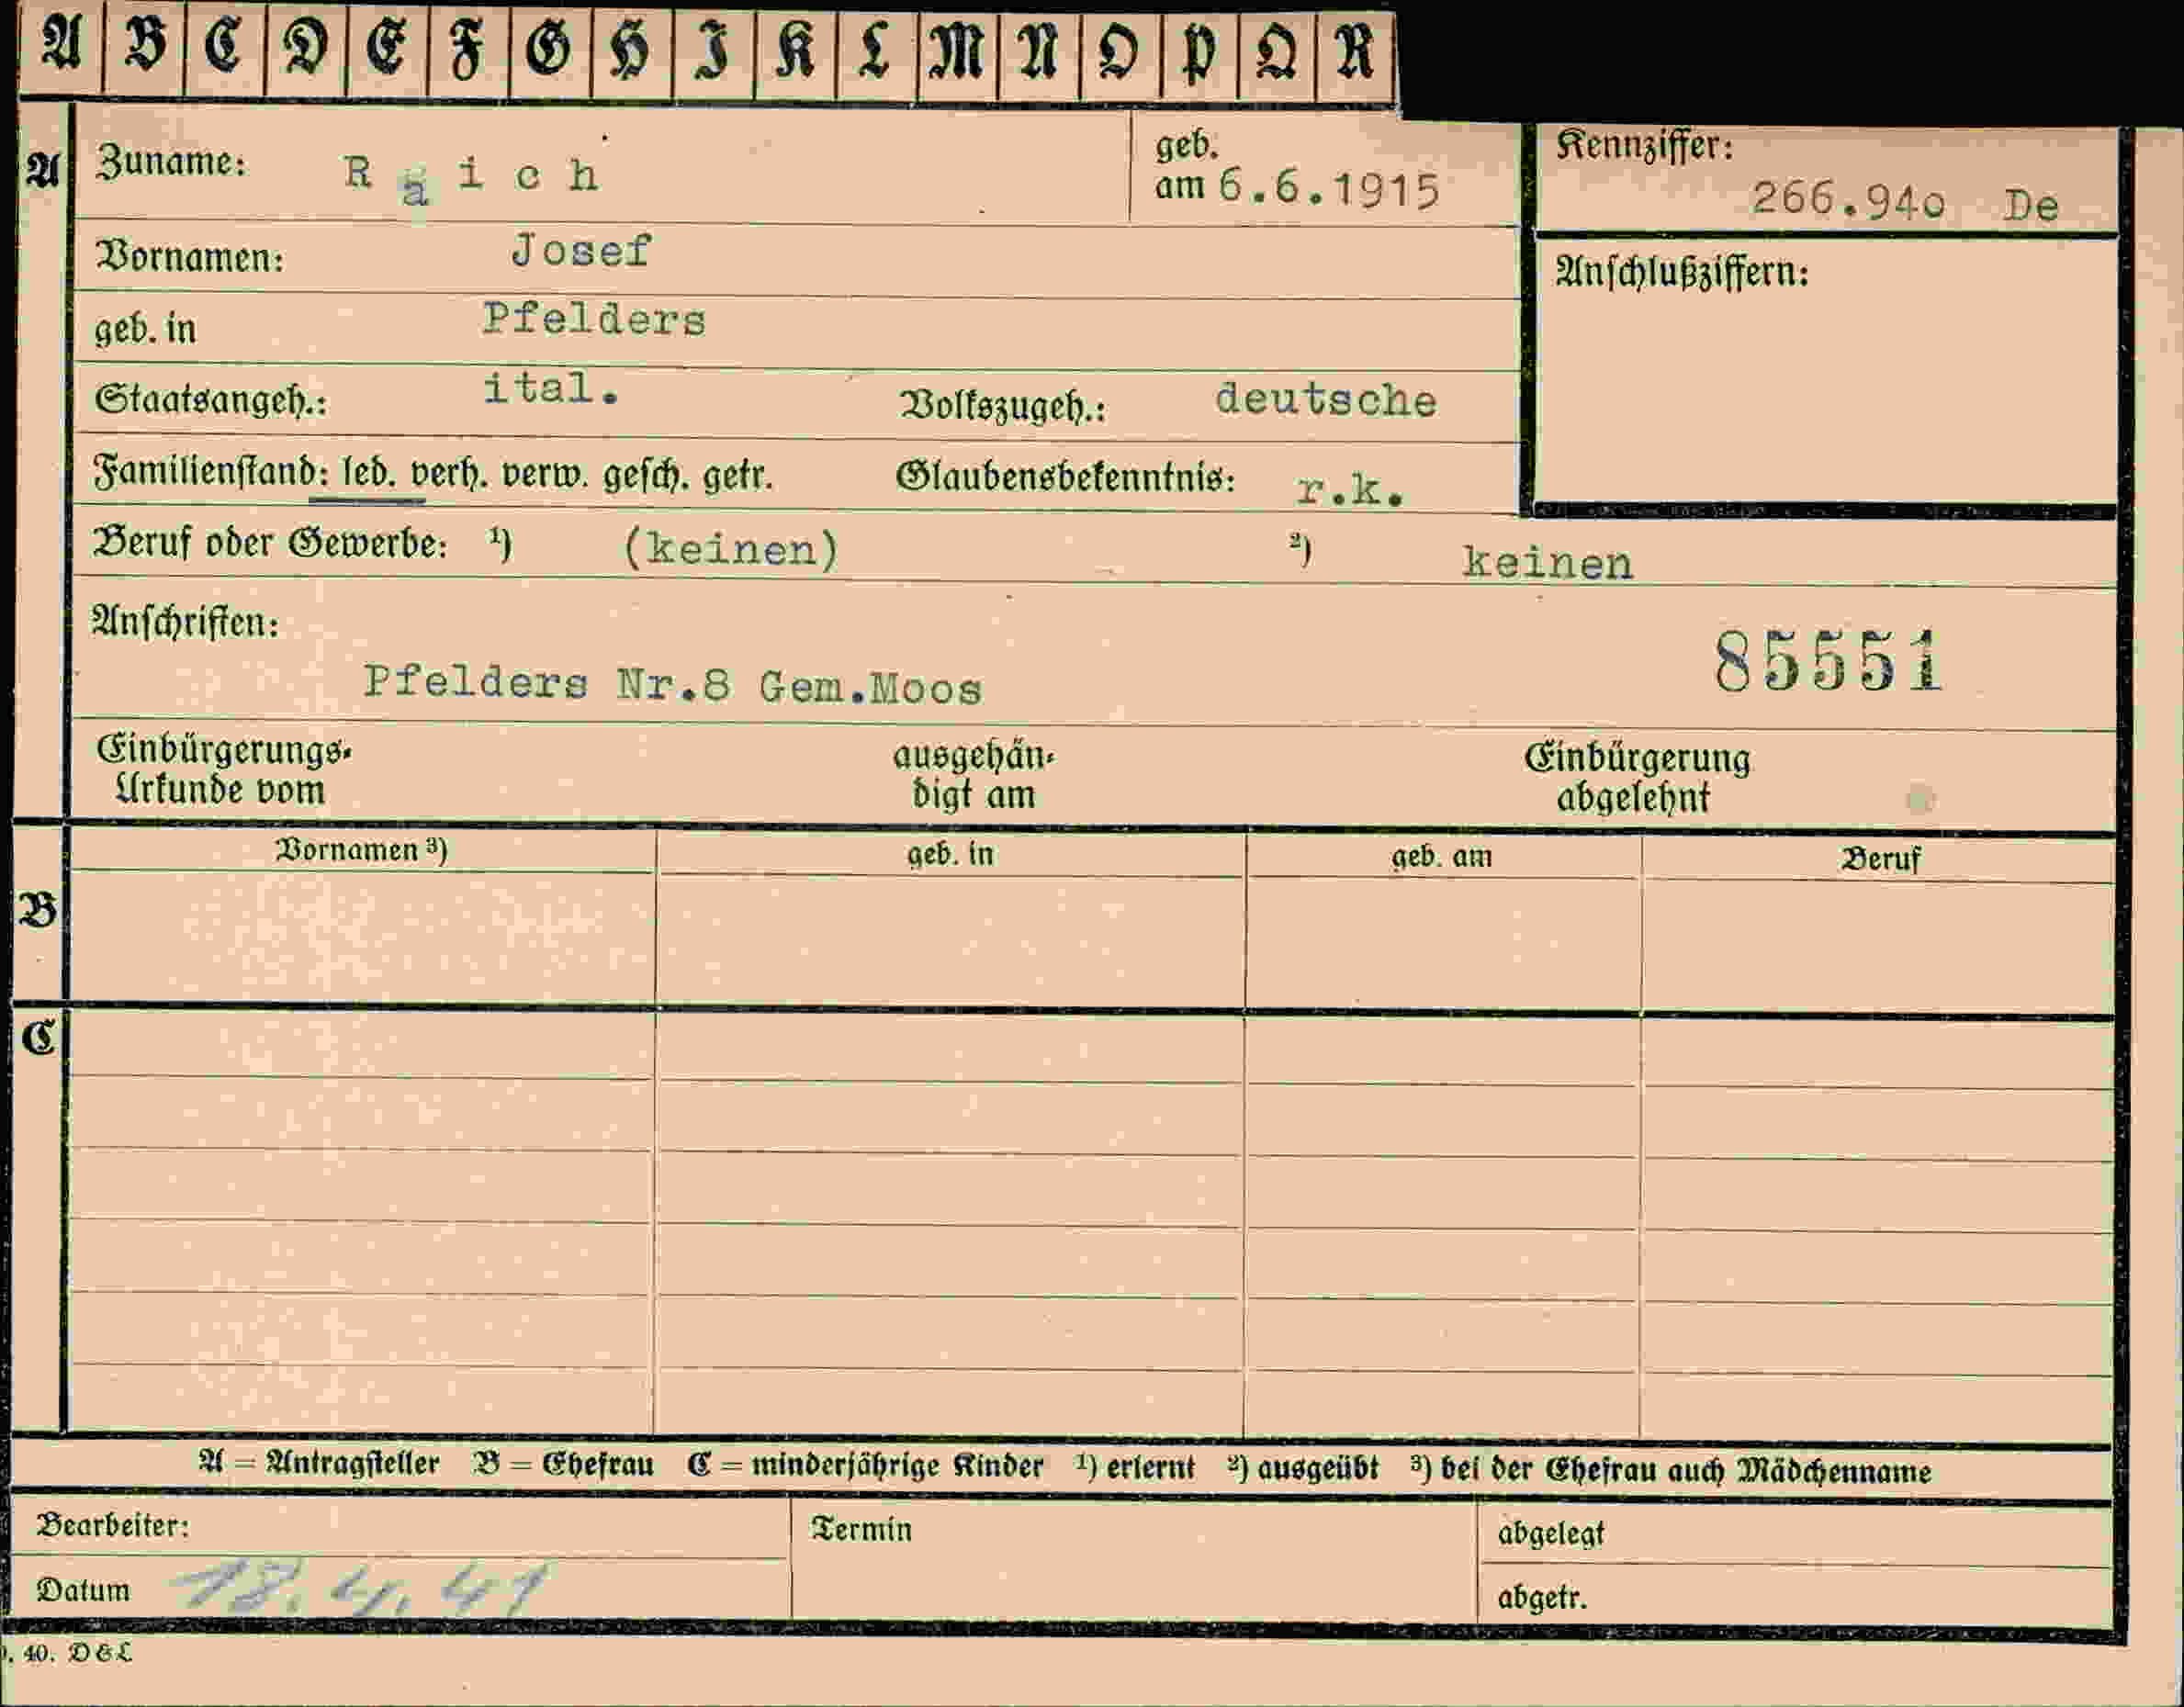 A B C D E F G H I K L M N O P Q R
A Zuname: Raich geb. am 6.6.1915 Kennziffer: 266.940 De
Vornamen: Josef Anschlußziffern:
geb. in Pfelders
Staatsangeh.: ital. Volkszugeh.: deutsche
Familienstand: led. verh. verw. gesch. getr. Glaubensbekenntnis: r.k.
Beruf oder Gewerbe: ¹) (keinen) ²) keinen
Anschriften:
85551
Pfelders Nr.8 Gem.Moos
Einbürgerungs-
Urkunde vom
ausgehän-
digt am
Einbürgerung
abgelehnt
Vornamen ³) geb. in geb. am Beruf
B
C
A = Antragsteller B = Ehefrau C = minderjährige Kinder ¹) erlernt ²) ausgeübt ³) bei der Ehefrau auch Mädchenname
Bearbeiter: Termin abgelegt
Datum 18.4.41 abgetr.
. 40. D&L